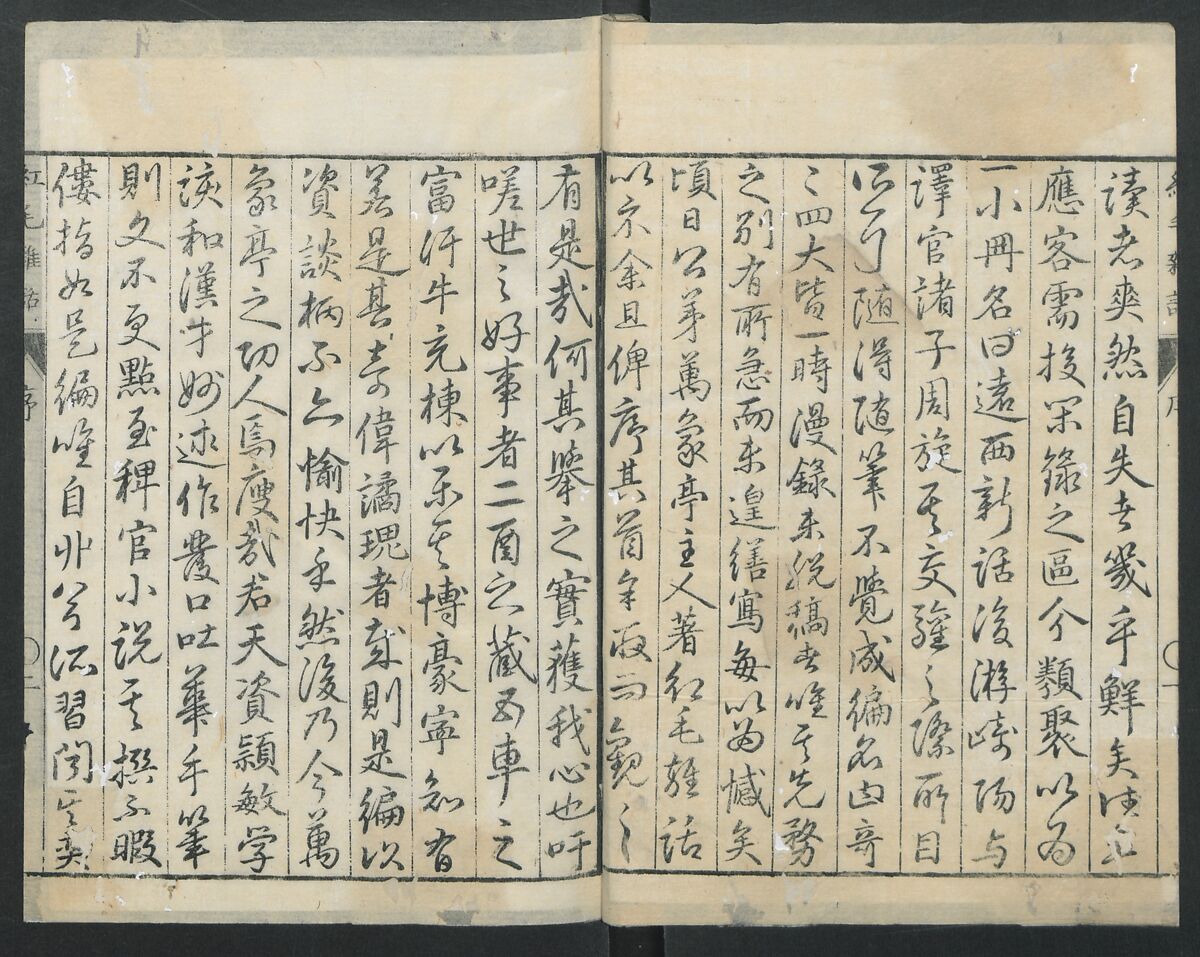 讀者爽然自失者幾乎鮮矣
應客需投某錄之區分類聚以為
一小冊名曰遠西新話後游崎陽与
譯官諸子周旋其交驩之際所目
所聞随得随筆不覺成編名曰
三四大皆一時漫錄未脱稿者唯其先務
之別有所急而未遑繕寫每以為憾矣
頃日公弟萬象亭主人著紅毛雜話
以示余且俾序其首余取而觀之
有是哉何其擧之實獲我心也吁
嗟世之好事者二酉之藏五車之
富汗牛充棟以示其博豪寧知有
若是其奇偉譎瑰者哉則是編以
資談柄不亦愉快乎然後乃今萬
象亭之功人焉廋哉君天資穎敏学
該和漢才妙述作發口吐華手筆
則文不更點至稗官小説其撰不暇
僂指如是編唯自非公所習聞其奚
紅毛雜話
序
二
紅毛雜話
序
一